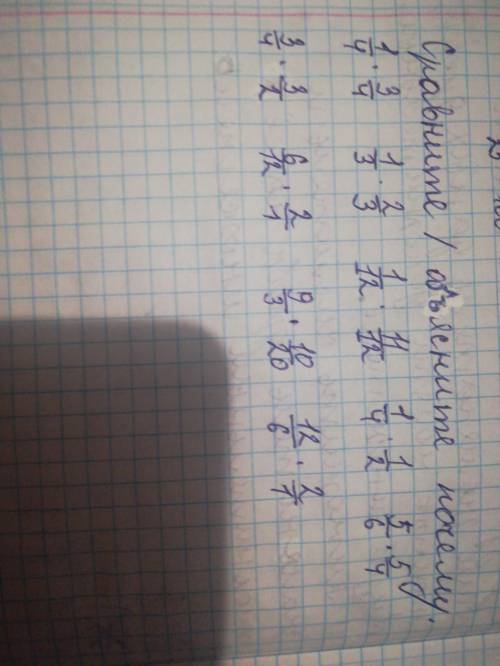 Сравните / объясните почему.
1/4 · 3/4 1/3 · 2/3 1/12 · 11/12 1/4 · 1/2 5/6 · 5/4
3/4 · 3/2 6/12 · 2/1 9/3 · 10/20 12/6 · 2/7